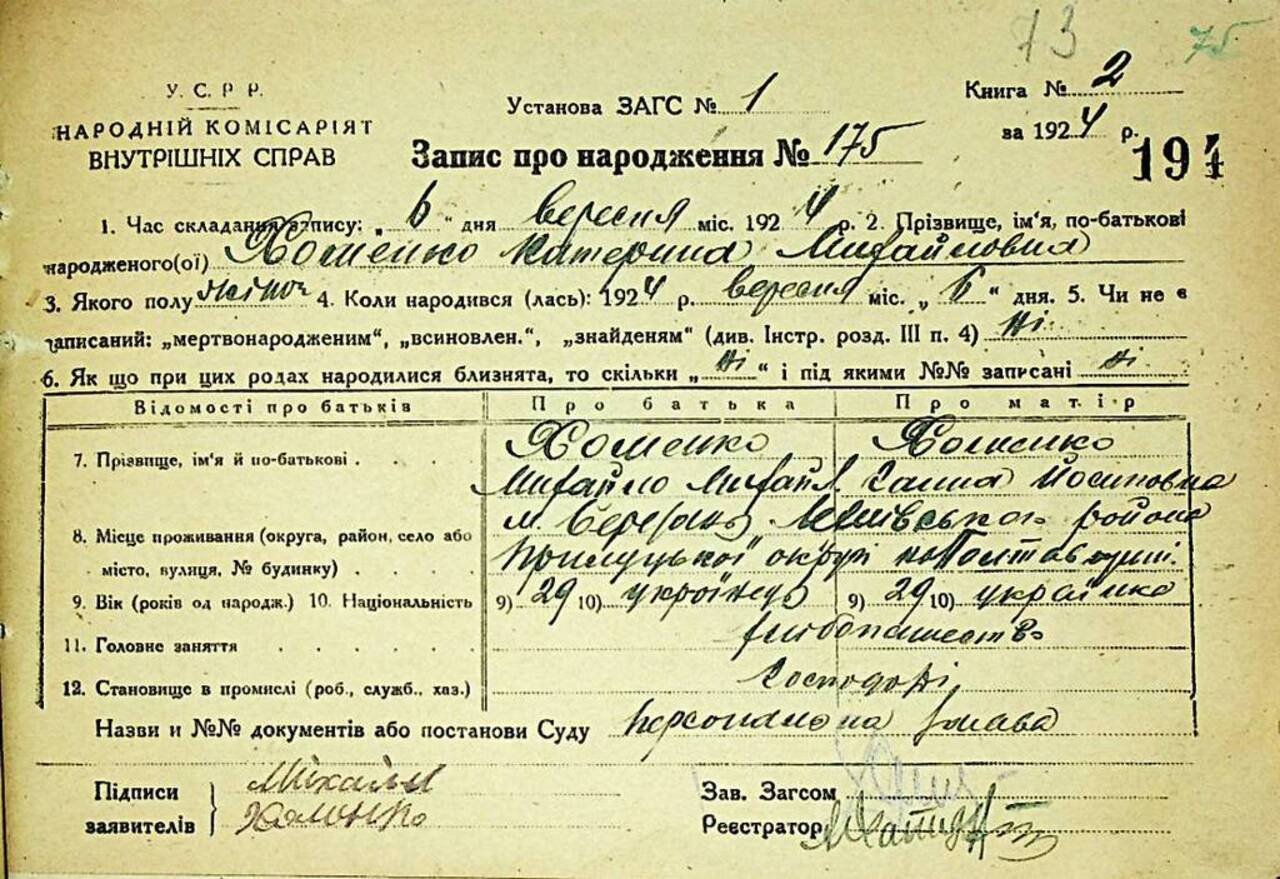 73 75
У. С. Р Р.
НАРОДНІЙ КОМІСАРІЯТ
ВНУТРІШНІХ СПРАВ
Установа ЗАГС № 1
Книга № 2
за 1924 р.
Запис про народження № 175
194
1. Час складання запису: „6“ дня вересня міс. 1924 р. 2. Прізвище, ім'я, по-батькові
народженого(ої) Хоменко Катерина Михайловна
3. Якого полу жіноч 4. Коли народився (лась): 1924 р. вересня міс. „6“ дня. 5. Чи не є
записаний: „мертвонародженим“, „всиновлен.“, „знайденям“ (див. Інстр. розд. III п. 4) ні
6. Як що при цих родах народилися близнята, то скільки „ні“ і під якими №№ записані ні
Відомості про батьків Про батька Про матір
7. Прізвище, ім'я й по-батькові Хоменко Хоменко
Михайло Михайл Ганна Йосиповна
8. Місце проживання (округа, район, село або м. Березань району
місто, вулиця, № будинку) Прилуцької округи на Полтавщині.
9. Вік (років од народж.) 10. Національність 9) 29 10) українець 9) 29 10) українка
11. Головне заняття хлібопашество
12. Становище в промислі (роб., служб., хаз.) Господарі
Назви и №№ документів або постанови Суду персональна заява
Підписи заявителів Михайло
Хоменко
Зав. Загсом
Реєстратор